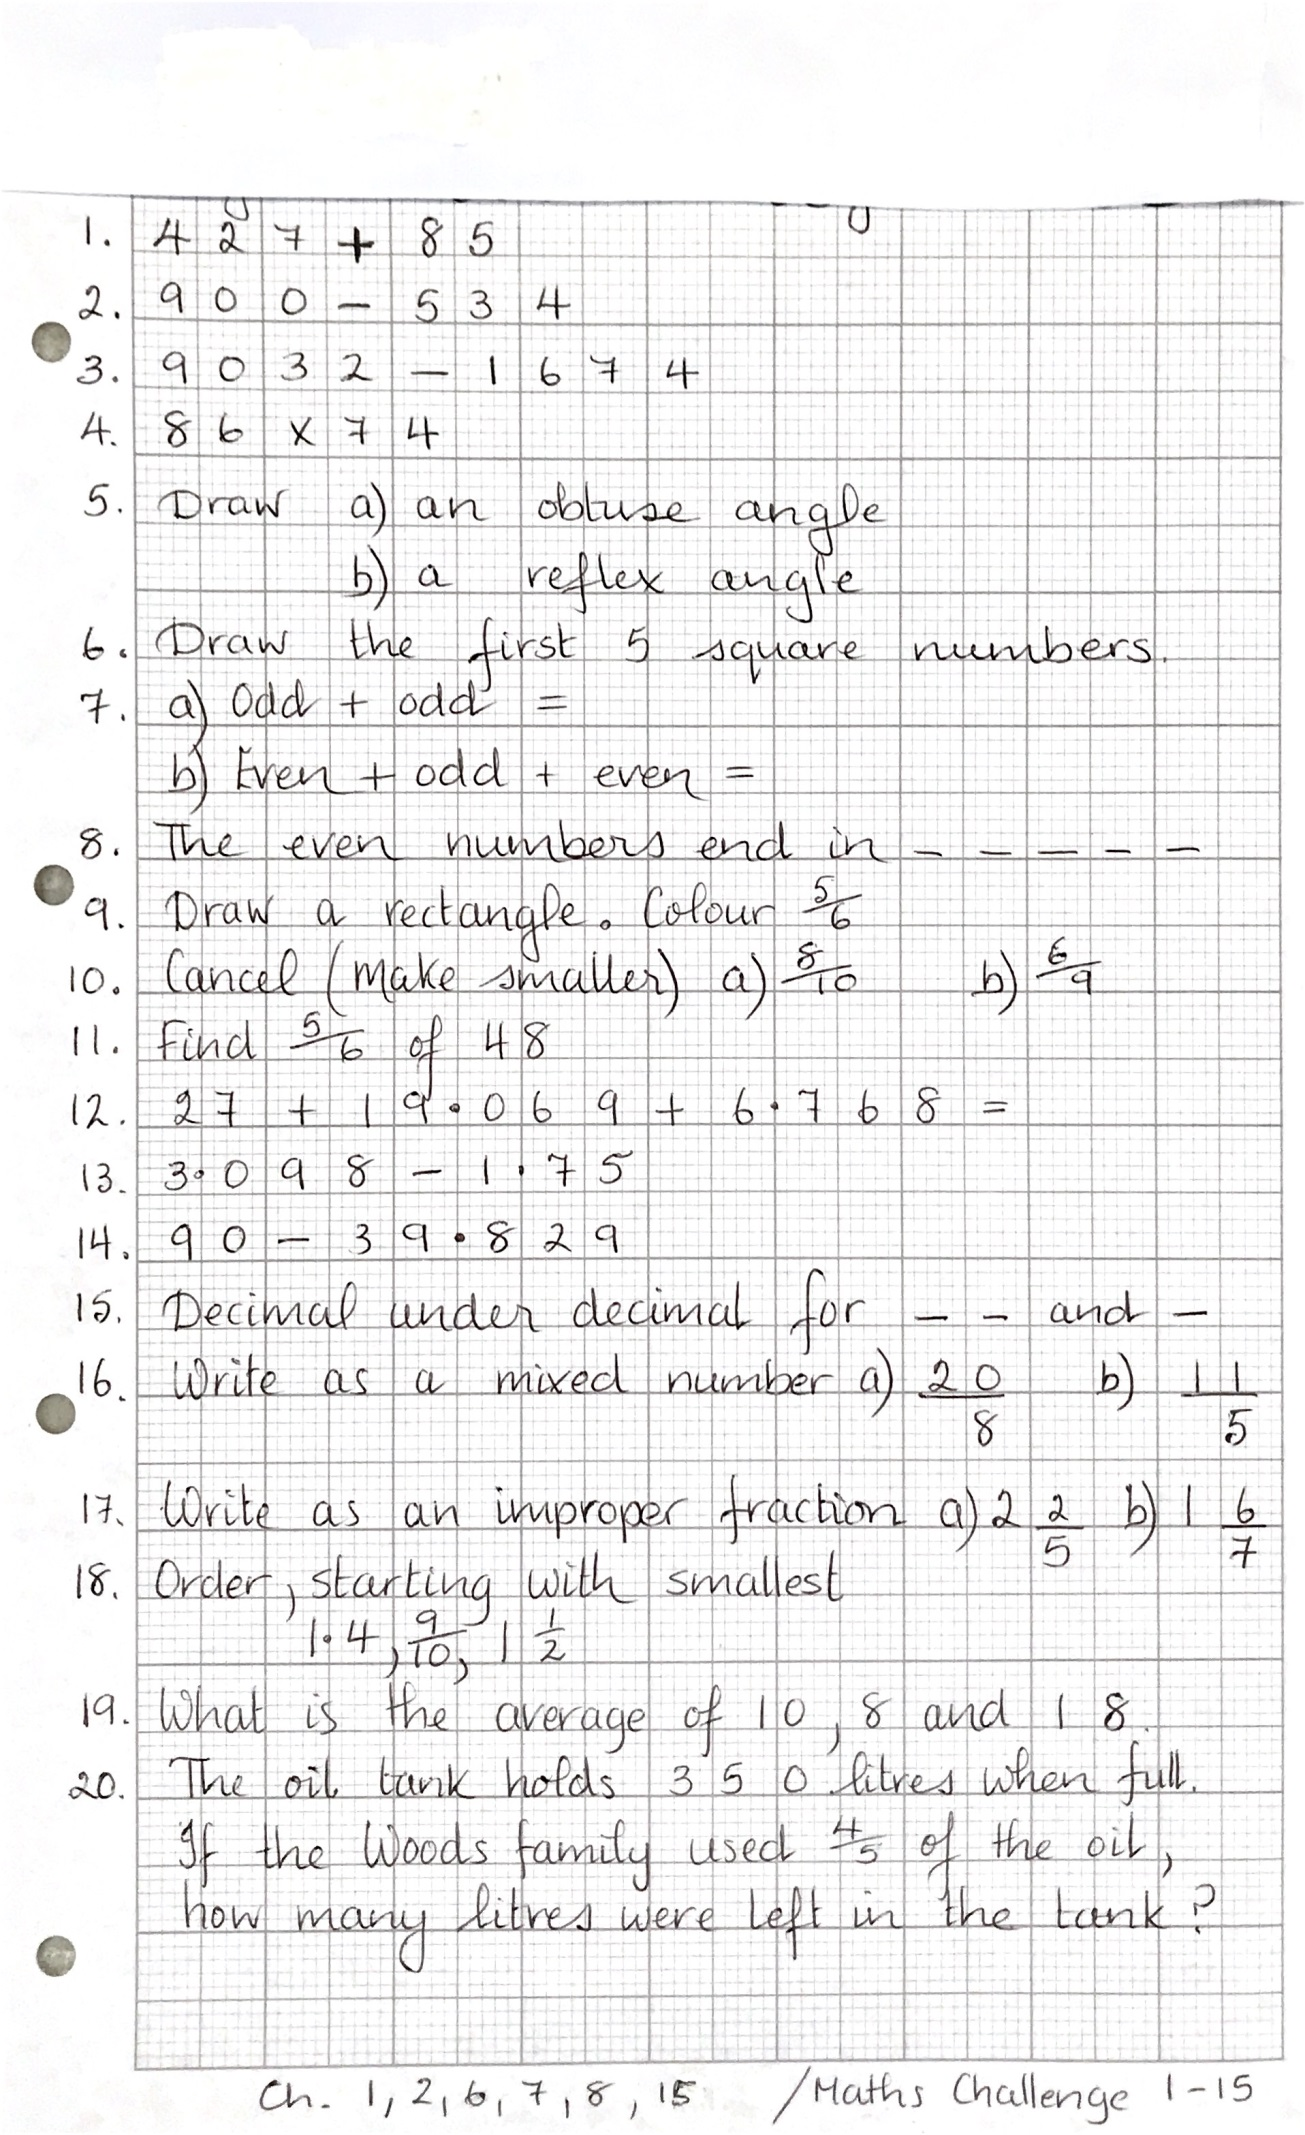 1. 427 + 85
2. 900 - 534
3. 9032 - 1674
4. 86 x 74
5. Draw a) an obtuse angle
b) a reflex angle
6. Draw the first 5 square numbers.
7. a) Odd + odd =
b) Even + odd + even =
8. The even numbers end in _ _ _ _ _
9. Draw a rectangle. Colour 5/6
10. Cancel (make smaller) a) 8/10 b) 6/9
11. Find 5/6 of 48
12. 27 + 19.069 + 6.768 =
13. 3.098 - 1.75
14. 90 - 39.829
15. Decimal under decimal for _ _ and _
16. Write as a mixed number a) 20/8 b) 11/5
17. Write as an improper fraction a) 2 2/5 b) 1 6/7
18. Order, starting with smallest
1.4, 9/10, 1 1/2
19. What is the average of 10, 8 and 18.
20. The oil tank holds 350 litres when full.
If the Woods family used 4/5 of the oil,
how many litres were left in the tank?
Ch. 1, 2, 6, 7, 8, 15 /Maths Challenge 1-15